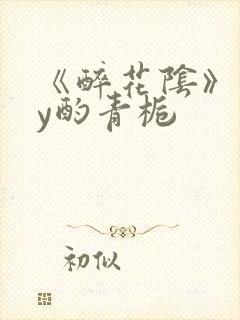 《醉花陰》
y酌青栀
初似